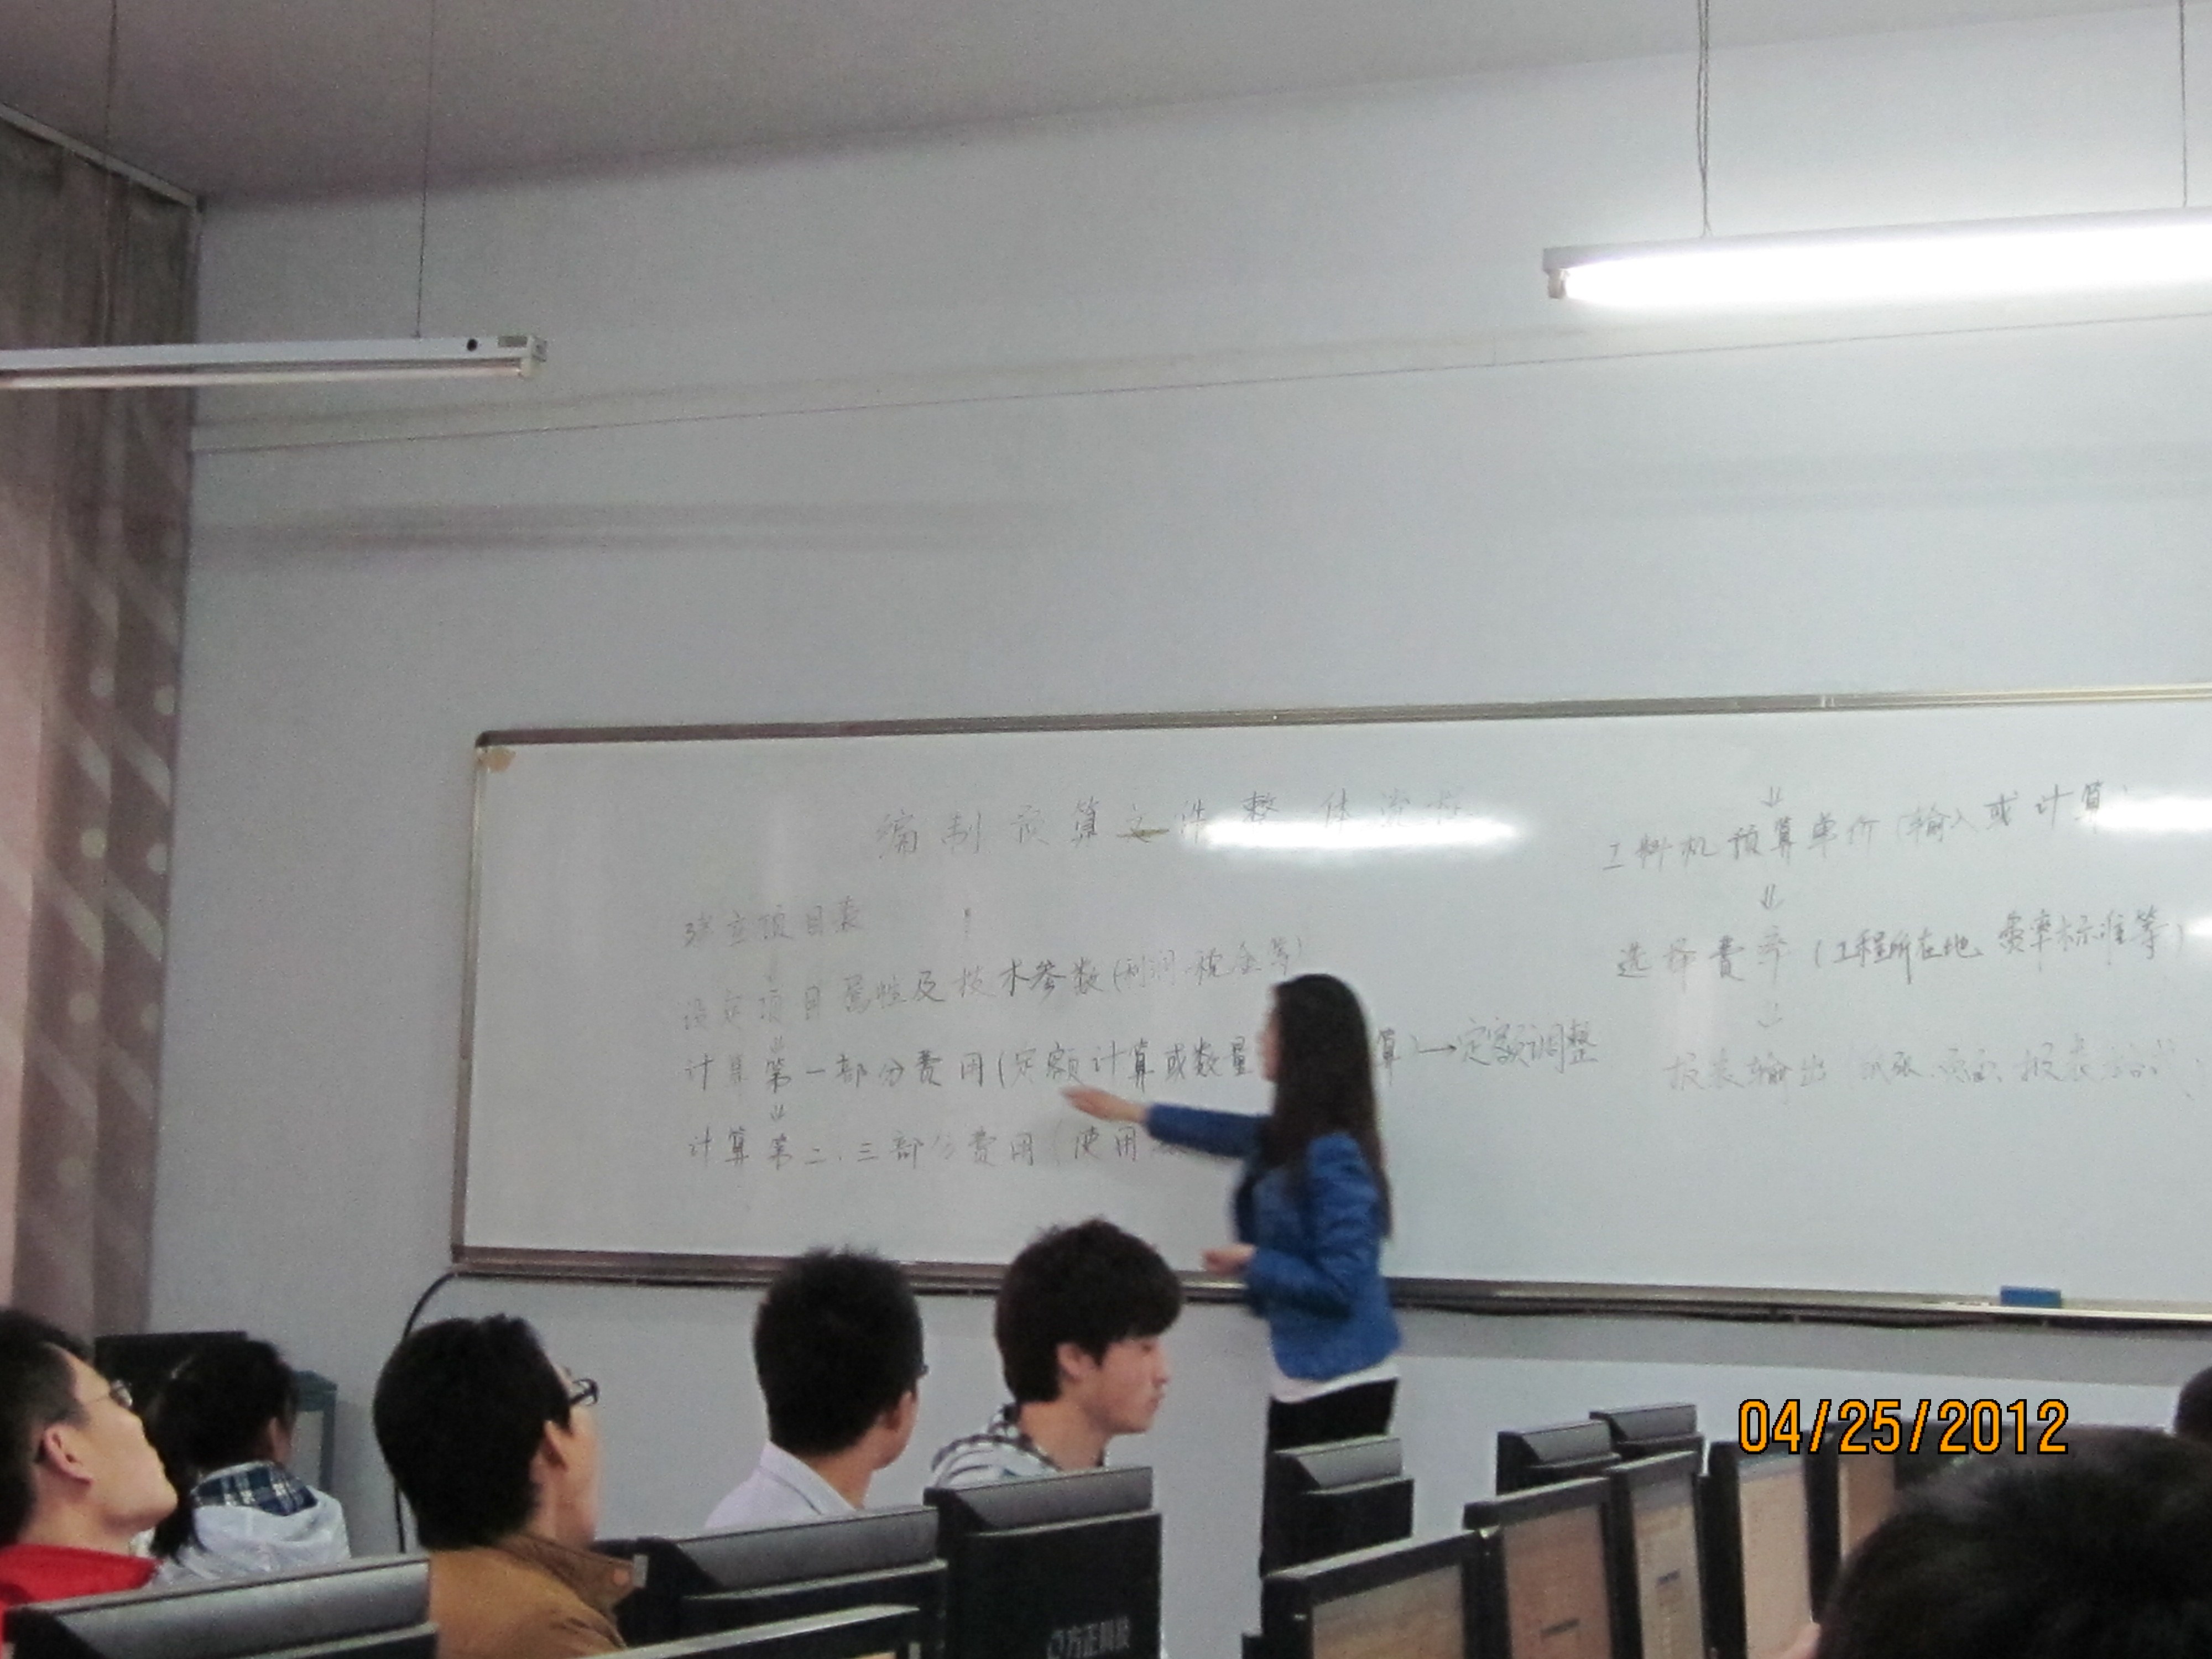 编制预算文件整体流程
建立项目表
设定项目属性及技术参数(利润、税金等)
计算第一部分费用(定额计算或数量 算)→定额调整
计算第二、三部分费用(使用
工料机预算单价(输入或计算)
选择费率(工程所在地、费率标准等)
报表输出
方正科技
04/25/2012